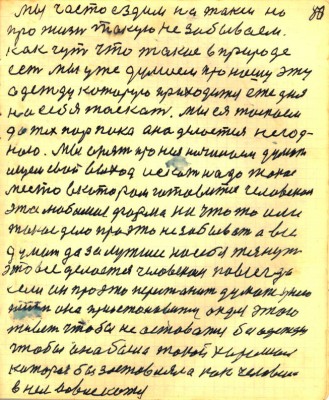 Мы часто ездим на такси но
про жизнь такую не забываем.
как чуть что такое в природе
есть мы уже думаем про нашу эту
одежду которую приходится ежедня
на себя таскать. мы ея таскаем
до тех пор пока она делается негод-
ною. Мы опять про нея начинаем думать
свой выход искать надо такое
место в котором готовится человеком
эта любимая форма на что то или
такое дело про это не забывать а все
думать да за лучшее на себя тянуть
это все делается человеком повсегда
если он про это перестанет думать у него
она приостановит ради этого
живет чтобы не оставаться без одежды
чтобы она была такой хорошей
которая бы заставляла как человека
в ней